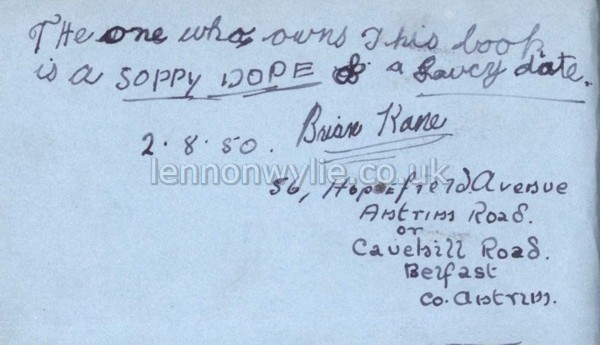 The one who owns This book
is a SOPPY DOPE & a Saucy date.
2.8.50. Brian Kane
lennonwylie.co.uk
56, Hopefield Avenue
Antrim Road.
or
Cavehill Road.
Belfast
Co. Antrim.